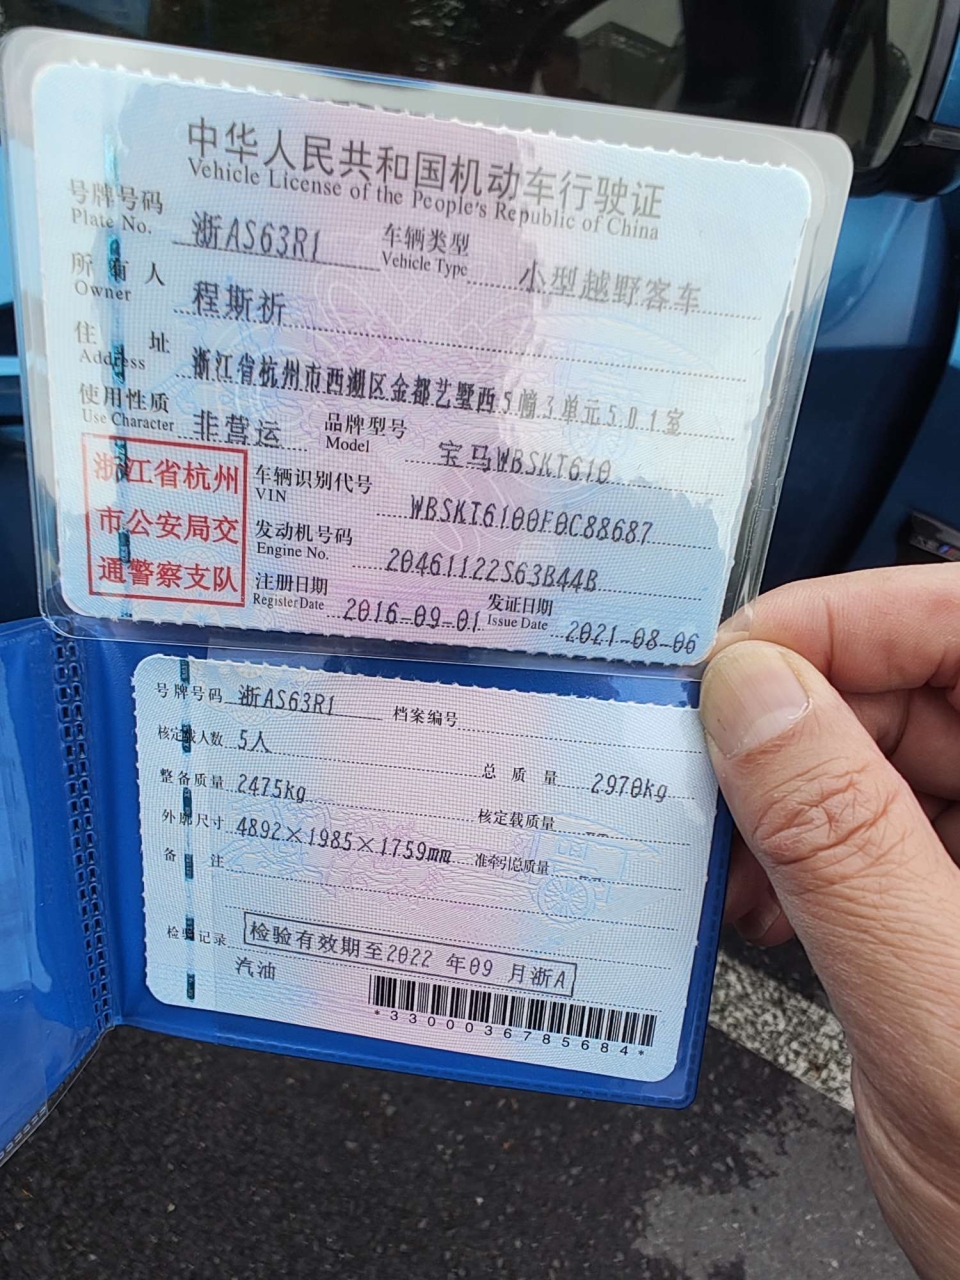 中华人民共和国机动车行驶证
Vehicle License of the People's Republic of China
号牌号码 浙AS63R1 车辆类型 小型越野客车
Plate No. Vehicle Type
所有人 程斯祈
Owner
住址 浙江省杭州市西湖区金都艺墅西5幢3单元501室
Address
使用性质 非营运 品牌型号 宝马WBSKT610
Use Character Model
浙江省杭州
市公安局交
通警察支队
车辆识别代号 WBSKT6100F0C88687
VIN
发动机号码 20461122S63B44B
Engine No.
注册日期 2016-09-01 发证日期 2021-08-06
Register Date Issue Date
号牌号码 浙AS63R1 档案编号
核定载人数 5人 总质量 2970kg
整备质量 2475kg 核定载质量 --
外廓尺寸 4892×1985×1759mm 准牵引总质量 --
备注
检验记录 检验有效期至2022年09月浙A
汽油
*3300036785684*